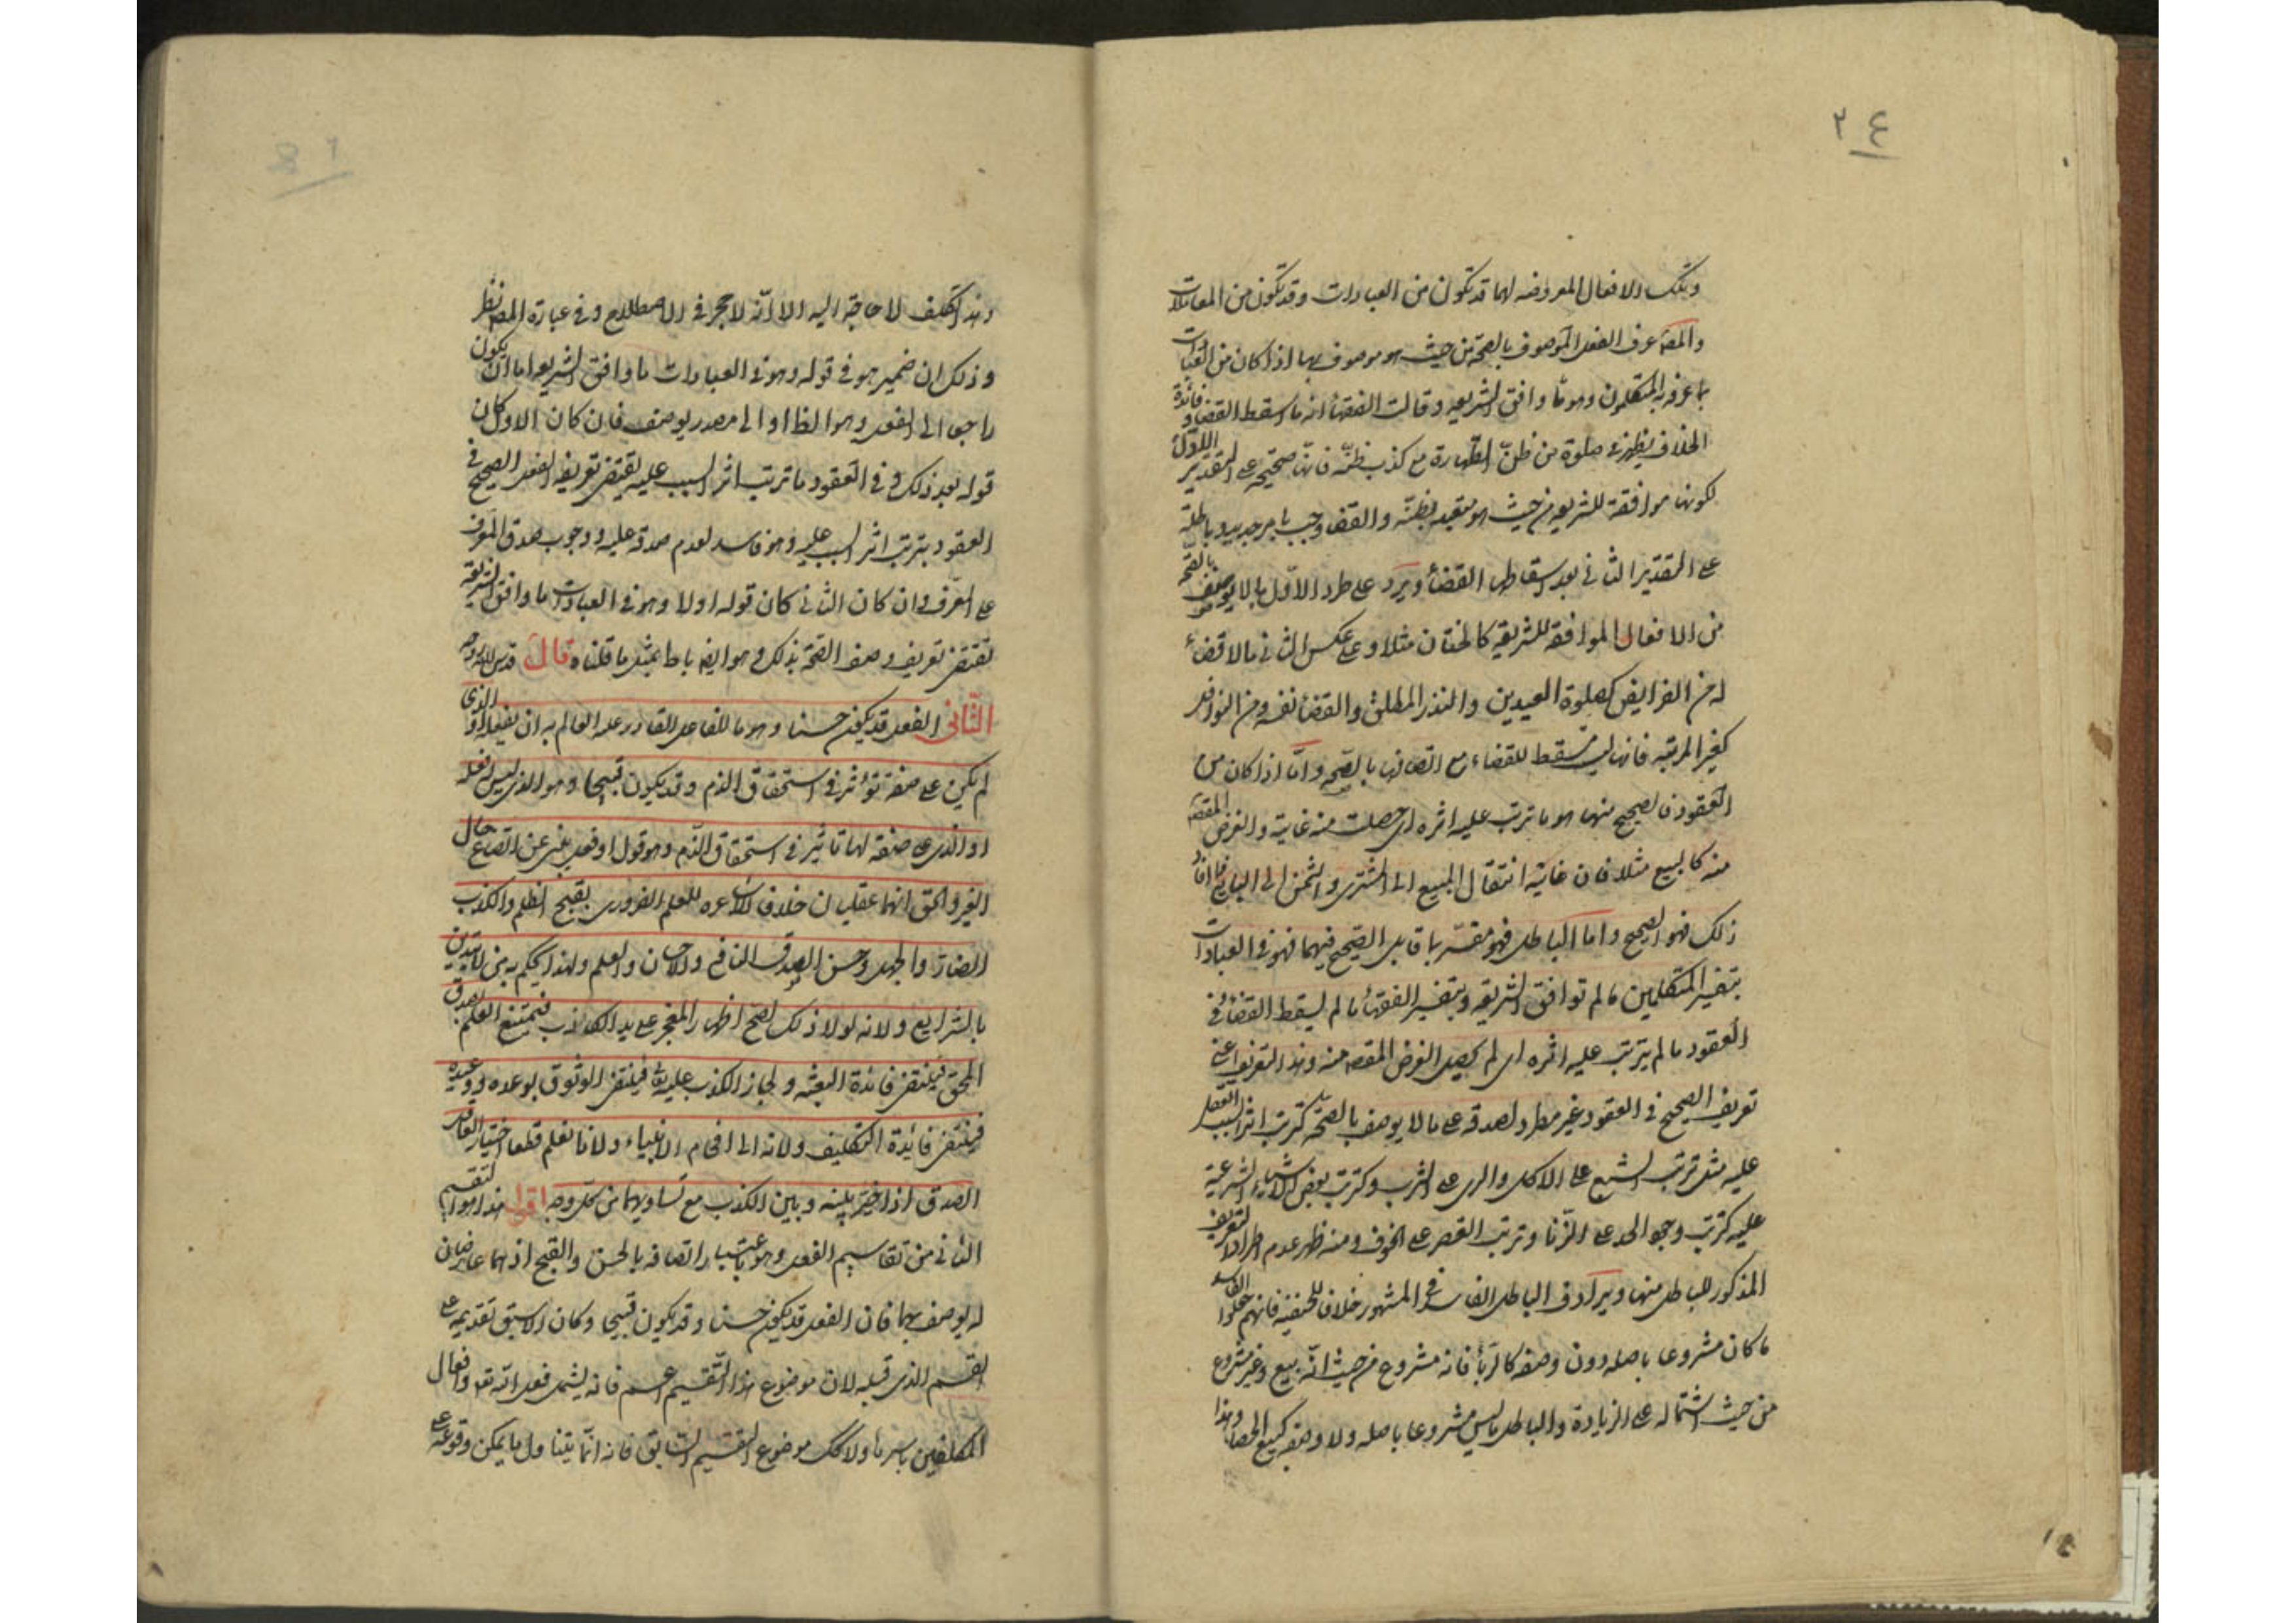 ٣٤
وتلك الافعال المعروضه لها قد تكون من العبادات وقد تكون من المعاملات
والمصّ عرف الفعل الموصوف بالصحة من حيث هو موصوف بها اذا كان من العبادات
بما عرفه المتكلمون وهو ما وافق الشريعه وقالت الفقهأ انه ما اسقط القضاء وفائدة
الخلاف يظهر في صلوة من ظنّ الطهارة مع كذب ظنّه فانها صحيحة على التقدير الاول
لكونها موافقة للشريعه من حيث هو متعبد بظنّه والقضا وجب بامر جديد وباطلة
على التقدير الثاني بعدم اسقاطها القضأ ويرد على طرد الاوّل ما لا يوصف بالصحة
من الافعال الموافقة للشريعه كالختان مثلا وعلى عكس الثاني ما لا قضأ
له من الفرايض كصلوة العيدين والنذر المطلق والقضأ نفسه ومن النوافل
كغير المرتبه فانها ليست مسقط للقضاء مع اتصافها بالصحة وامّا اذا كان من
العقود فالصحيح منها هو ما ترتب عليه اثره اى حصلت منه غايته والغرض المقصود
منه كالبيع مثلا فان غايته انتقال المبيع الى المشترى والثمن الى البايع فما افاد
ذلك فهو الصحيح واما الباطل فهو مفسّر بما قابل الصحيح فيهما فهو في العبادات
بتفسير المتكلمين ما لم توافق الشريعه وبتفسير الفقهأ ما لم يسقط القضأ وفي
العقود ما لم يترتب عليه اثره اى لم يحصل الغرض المقصود منه وهذا التعريف اعنى
تعريف الصحيح في العقود غير مطرد لصدقه على ما لا يوصف بالصحّة كترتب اثر السبب العقلى
عليه مثل ترتب الشبع على الاكل والرى على الشرب وكترتب بعض الاشياء الشرعية
عليه كترتب وجوب الحد على الزّنا وترتب القصر على الخوف ومنه ظهر عدم اطراد التعريف
المذكور للباطل منها ويرادف الباطل الفاسد في المشهور خلافا للحنفيه فانهم جعلوا الفاسد
ما كان مشروعا باصله دون وصفه كالربأ فانه مشروع من حيث انّه بيع وغير مشروع
من حيث اشتماله على الزيادة والباطل ما ليس مشروعا باصله ولا وصفه كبيع الحصاة وهذا
وهذا التكليف لا حاجة اليه الا انّه لا حجر في الاصطلاح وفي عبارة المصّ نظر
وذلك ان ضمير هو في قوله وهو في العبادات ما وافق الشريعه اما ان يكون
راجعا الى الفعل وهو الظ او الى مصدر يوصف فان كان الاول كان
قوله بعد ذلك وفي العقود ما ترتب اثر السبب عليه يقتضى تعريف الفعل الصحيح في
العقود بترتب اثر السبب عليه وهو فاسد لعدم صدقه عليه ووجوب صدق المعرف
على المعرّف وان كان الثاني كان قوله اولا وهو في العبادات ما وافق الشريعة
يقتضى تعريف وصف الصحّة بذلك وهو ايضا باطل بمثل ما قلناه قال قدس الله روحه
الثّاني الفعل قد يكون حسنا وهو ما للفاعل القادر عليه العالم به ان يفعله او الذى
لم يكن على صفة تؤثر في استحقاق الذم وقد يكون قبيحا وهو الذى ليس له فعله
او الذى على صفة لها تاثير في استحقاق الذّم وهو قول او فعل ينبى عن اتضاع حال
الغير والحق انهما عقليان خلافا للاشاعره للعلم الضرورى بقبح الظلم والكذب
الضارّ والجهل وحسن الصدق النافع والاحسان والعلم ولهذا يحكم به من لا يتدين
بالشرايع ولانه لولا ذلك لصح اظهار المعجز على يد الكاذب فيمتنع العلم بصدق
المحق فينتفى فائدة البعثه ولجاز الكذب عليه تع فينتفى الوثوق بوعده ووعيده
فينتفى فائدة التكليف ولادّائه الى افحام الانبياء ولانا نعلم قطعا اختيار العاقل
الصدق اذا خيّر بينه وبين الكذب مع تساويهما من كل وجه اقول هذا هو التقسيم
الثاني من تقاسيم الفعل وهو باعتبار اتصافه بالحسن والقبح اذ هما عارضان
له يوصف بهما فان الفعل قد يكون حسنا وقد يكون قبيحا وكان الاسبق تقديمه على
القسم الذى قبله لان موضوع هذا التّقسيم اعم فانه يشمل فعل الله تع وافعال
المكلفين باسرها ولا كك موضوع التقسيم السّابق فانه انّما يتناول ما يمكن وقوعه على